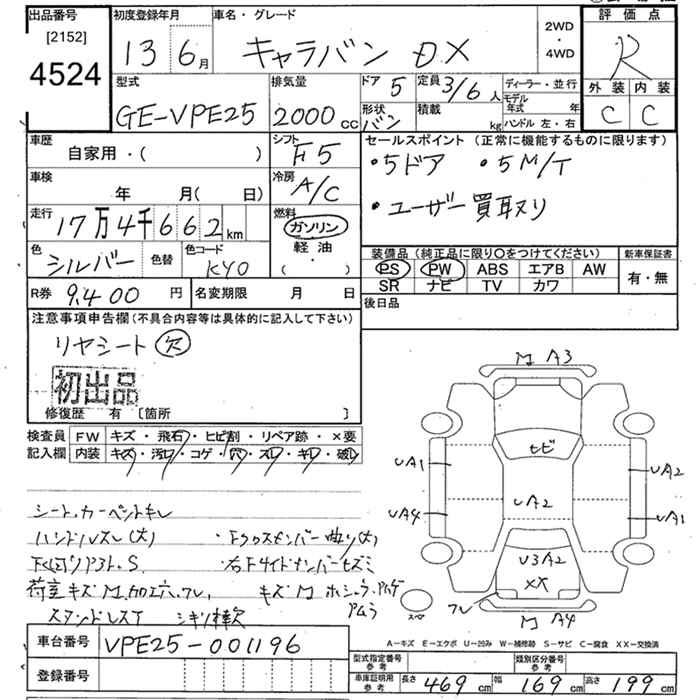 出品番号 初度登録年月 車名・グレード 2WD・4WD 評価点
[2152]
4524 13 6月 キャラバン DX R
型式 排気量 ドア 5 定員 3/6人 ディーラー・並行 外装 内装
GE-VPE25 2000cc 形状 バン 積載 kg モデル年式 年 ハンドル 左・右 C C
車歴 シフト セールスポイント (正常に機能するものに限ります)
自家用・( ) F5 ・5ドア ・5M/T
車検 冷房
年 月( 日) A/C ・ユーザー買取り
走行 燃料
17万4千662km ガソリン
色 色替 色コード 軽油 装備品(純正品に限り〇をつけてください) 新車保証書
シルバー KY0 ( ・ ) PS PW ABS エアB AW 有・無
SR ナビ TV カワ
R券 9,400円 名変期限 月 日 後日品
注意事項申告欄(不具合内容等は具体的に記入して下さい)
リヤシート 欠
初出品
修復歴 有 [箇所 ]
検査員 FW キズ・飛石・ヒビ割・リペア跡・×要
記入欄 内装 キズ・汚れ・コゲ・穴・スレ・キレ・破レ
M A3
ヒビ
UA1 UA2
UA2
UA4 UA1
U3A2
XX
M A4
シート、カーペットキレ
ハンドルスレ(大)
キズM
スペア
A-キズ E-エクボ U-凹み W-補修跡 S-サビ C-腐食 XX-交換済
車台番号 VPE25-001196
登録番号
型式指定番号 参考 類別区分番号 参考
車庫証明用 参考 長さ 469cm 幅 169cm 高さ 199cm